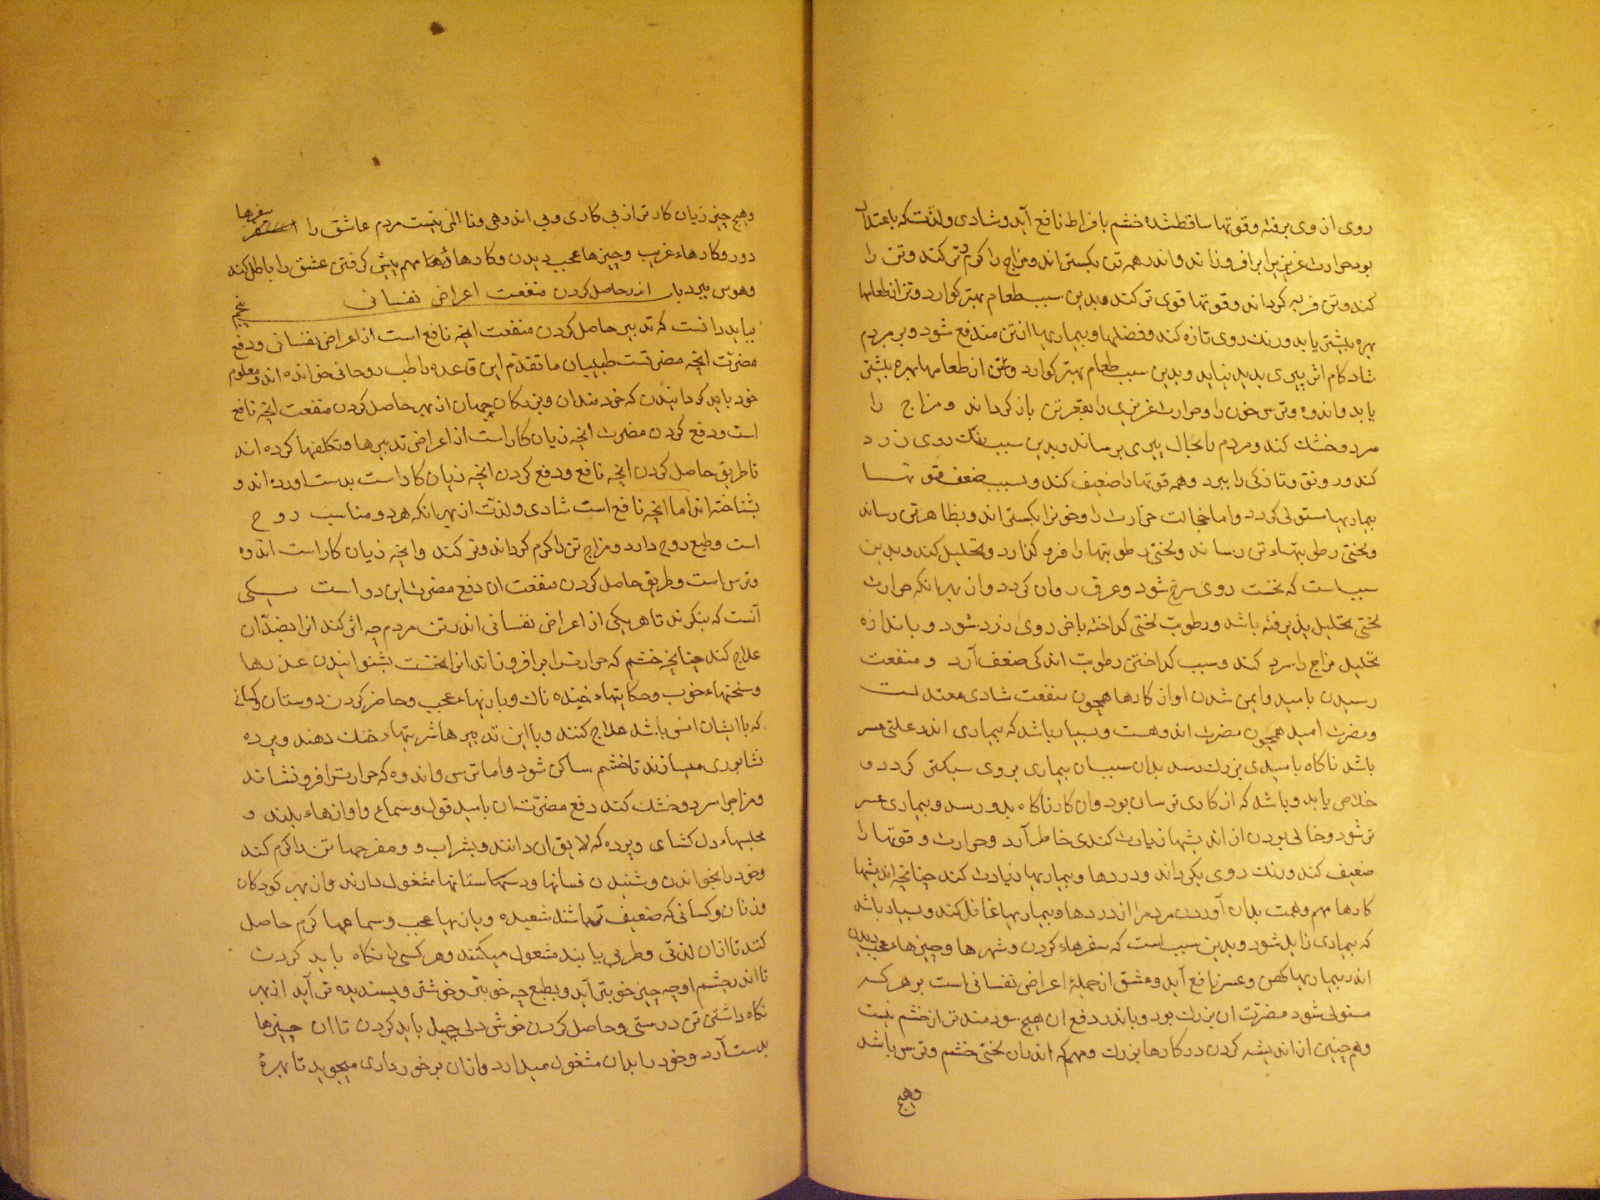 روی ان وی برفته و قوتها ساقط شده خشم بافراط نافع آید و شادی و لذت که باعتدال
بود حرارت غریزی را برافروزاند و اندر همه تن بکستراند و مزاج را کرم و تر کند و تن را
کند و تن فربه کرداند و قوتها قوی تر کند و بدین سبب طعام بهتر کوارد و تن از طعامها
بهره بیشتر یابد و رنك روی تازه کند و فضلها و بیماریها از تن مندفع شود و بر مردم
شادکام اثر پیری پدید نیاید و بدین سبب طعام بهتر کوارد و تن از طعامها بهره بیشتر
یابد و اندوه و ترس خون را و حرارت غریزی را بقعر تن باز کرداند و مزاج را
سرد و خشك کند و مردم را بحال پیری برساند و بدین سبب رنك روی زرد
کند و رونق و تازکی را ببرد و همه قوتها را ضعیف کند و بسبب ضعف قوتها
بیماریها مستولی کردد و اما خجالت حرارت را و خون را بکستراند و بظاهر تن رساند
و لختی رطوبتهاء تن رساند و لختی رطوبتها را فرو کذارد و تحلیل کند و بدین
سبب است که نخست روی سرخ شود و عرق روان کردد و از بهر انکه حرارت
لختی تحلیل پذیرفته باشد و رطوبت لختی کداخته باخر روی زرد شود و باندازه
تحلیل مزاج را سرد کند و سبب کداختن رطوبت اندکی ضعف آرد و منفعت
رسیدن بامید و ایمن شدن او از کارها همچون منفعت شادی معتدلست
و مضرت امید همچون مضرت اندوهست و بسیار باشد که بیماری اندر علتی عسر
باشد ناکاه بامیدی بزرك رسد بدان سبب ان بیماری بر وی سبکتر کردد و
خلاص یابد و باشد که از کاری ترسان بود و ان کار ناکاه بدو رسد و بیماری عسر
تر شود و خالی بودن از اندیشها زیادت کندی خاطر آرد و حرارت و قوتها را
ضعیف کند و رنك روی بکرداند و دردها و بیماریها زیادت کند چنانچه اندیشها
کارها مهم و همت بدان آوردن مردم را از دردها و بیماریها غافل کند و بسیار باشد
که بیماری زایل شود و بدین سبب است که سفرهاء کردن و شهرها و چیزهاء عجب دیدن
اندر بیماریها کهن و عسر نافع آید و عشق از جملۀ اعراض نفسانی است بر هر کس
مستولی شود مضرت ان بزرك بود و باندر دفع ان هیچ سودمندتر از خشم نیست
و همچنین از اندیشه کردن در کارها بزرك و مهم که اندران لختی خشم و ترس باشد
وهیج
و هیچ چیز زیان کارتر از بی کاری و بی اندوهی و فنا الی نیست مردم عاشق را سفرها
دور و کارهاء غریب و چیزهاء عجب دیدن و کارهاء مهم پیش کرفتن عشق را باطل کند
و هوس ببرد باب اندر حاصل کردن منفعت اعراض نفسانی
بباید دانست که تدبیر حاصل کردن منفعت انچه نافع است از اعراض نفسانی و دفع
مضرت انچه مضر تست طبیبان ما تقدم این قاعده را طب روحانی خوانده اند و معلوم
خود باید کردانیدن که خردمندان و بزرکان جهان از بهر حاصل کردن منفعت انچه نافع
است و دفع کردن مضرت انچه زیان کار است از اعراض تدبیرها و تکلفها کرده اند
تا طریق حاصل کردن انچه نافع و دفع کردن انچه زیان کار است بدست اورده اند و
بشناخته اند اما انچه نافع است شادی و لذت از بهر انکه هر دو مناسب روح
است و طبع روح دارد و مزاج تن را کرم کرداند و تر کند و انچه زیان کار است اندوه
و ترس است و طریق حاصل کردن منفعت ان دفع مضرت این دو است یکی
آنست که بنکرند تا هر یکی از اعراض نفسانی اندر تن مردم چه اثر کند انرا بضد ان
علاج کند چنانچه خشم که حرارت را برافروزاند انرا بخست بشنوانیدن عذرها
و سخنهاء خوب و حکایتهاء خنده ناك و بازیهاء عجب و حاضر کردن دوستان و کسانی
که با ایشان انس باشد علاج کنند و با این تدبیرها شربتهاء خنك دهند و پرده
نشابوری میسازند تا خشم ساکن شود و اما ترس و اندوه که حرارت را فرو نشاند
و مزاج را سرد و خشك کند دفع مضرت ان بامید قول و سماع و اوازهاء بلند و
مجلسهاء دل کشای و پرده که لایق ان دانند و بشراب و مفرحها تن را کرم کند
و خود را بخواندن و شنیدن فسانها و سمها ستانها مشغول دارند و از بهر کودکان
و زنان و کسانی که ضعیف تر باشند شعبده و بازیها عجب و سماعها کرم حاصل
کند تا ازان لذتی و طربی یابند مشغول میکنند و هر کسی را نکاه باید کردن
تا اندر چشم او چه چیز خوبتر آید و بطبع چه خوبتر و خوشتر و پسندیده تر آید از بهر
نکاه داشتن تن درستی و حاصل کردن خوش دلی جهد باید کردن تا ان چیزها
بدست آرد و خود را بدان مشغول میدارد و ازان برخورداری میجوید تا بهرۀ